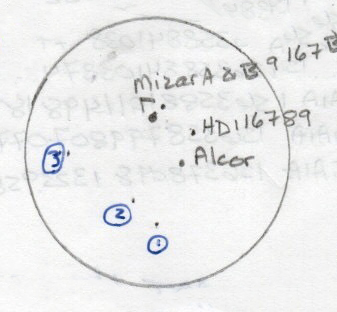 Mizar A & B 9167 B
HD116789
Alcor
3
2
1